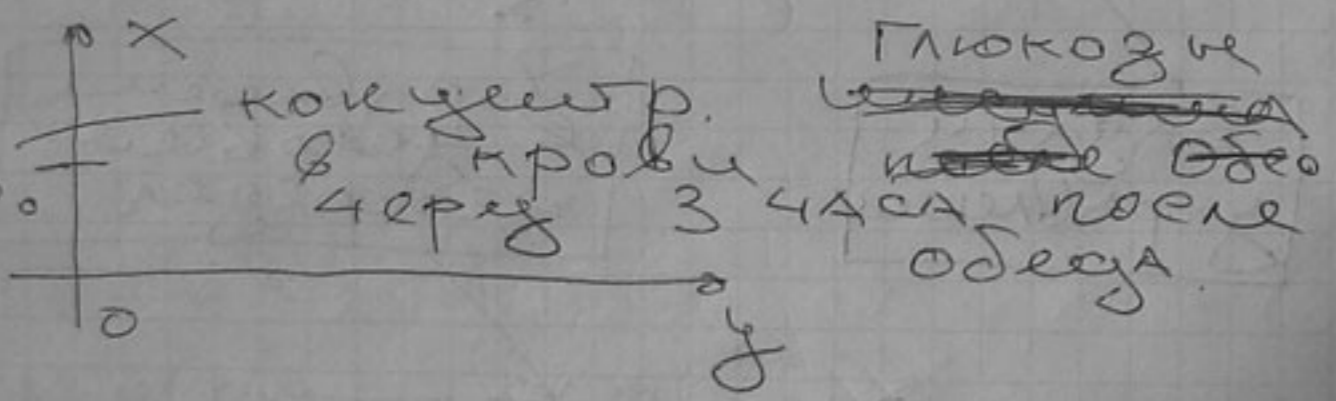 X
Глюкозы
концентр.
в крови
через 3 часа после
обеда
0
y